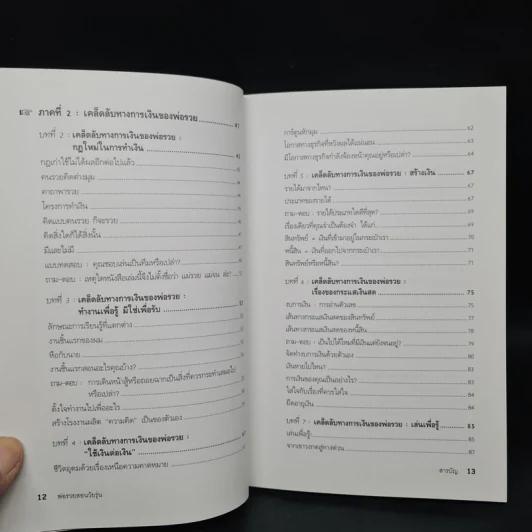 ภาคที่ 2 : เคล็ดลับทางการเงินของพ่อรวย 41
บทที่ 2 : เคล็ดลับทางการเงินของพ่อรวย :
กฎใหม่ในการทำเงิน
กฎเก่าใช้ไม่ได้ผลอีกต่อไปแล้ว
คนรวยคิดต่างมุม
คาถาพารวย
โครงการทำเงิน
คิดแบบคนรวย ก็จะรวย
คิดสิ่งใดก็ได้สิ่งนั้น
มีและไม่มี
แบบทดสอบ : คุณชอบเล่นเป็นทีมหรือเปล่า?
ถาม-ตอบ : เหตุใดหนังสือเล่มนี้จึงไม่ตั้งชื่อว่า แม่รวย แม่จน ล่ะ?
บทที่ 3 : เคล็ดลับทางการเงินของพ่อรวย :
ทำงานเพื่อรู้ มิใช่เพื่อรับ
ลักษณะการเรียนรู้ที่แตกต่าง
งานชิ้นแรกของผม
หือกับนาย
งานชิ้นแรกสอนอะไรคุณบ้าง?
ถาม-ตอบ : การเดินหน้าสู้หรือถอยฉากเป็นสิ่งที่ควรกระทำเสมอไป
หรือเปล่า?
ตั้งใจทำงานไปเพื่ออะไร
สร้างโรงงานผลิต "ความคิด" เป็นของตัวเอง
บทที่ 4 : เคล็ดลับทางการเงินของพ่อรวย :
"ใช้เงินต่อเงิน"
ชีวิตอุดมด้วยเรื่องเหนือความคาดหมาย
12 พ่อรวยสอนวัยรุ่น
การ์ตูนหักมุม 62
โอกาสทางธุรกิจที่หวังผลได้แน่นอน 64
มีโอกาสทางธุรกิจกำลังจ้องหน้าคุณอยู่หรือเปล่า? 64
บทที่ 5 : เคล็ดลับทางการเงินของพ่อรวย : สร้างเงิน 67
รายได้มาจากไหน?
ประเภทของรายได้
ถาม-ตอบ : รายได้ประเภทใดดีที่สุด?
เรื่องเดียวที่คุณจำเป็นต้องจำ ได้แก่
สินทรัพย์ = เงินที่เข้ามาอยู่ในกระเป๋าเรา 70
หนี้สิน = เงินที่ออกไปจากกระเป๋าเรา 71
สินทรัพย์หรือหนี้สิน? 71
บทที่ 6 : เคล็ดลับทางการเงินของพ่อรวย :
เรื่องของกระแสเงินสด 75
งบการเงิน - การอ่านตัวเลข
เส้นทางกระแสเงินสดของสินทรัพย์
เส้นทางกระแสเงินสดของหนี้สิน
ถาม-ตอบ : เป็นไปได้ไหมที่มีเงินแต่ยังจนอยู่?
จัดทำงบการเงินด้วยตัวเอง
เงินหายไปไหน?
การเงินของคุณเป็นอย่างไร?
ใส่ใจกับเรื่องที่ควรใส่ใจ
ยืดอายุเงิน
บทที่ 7 : เคล็ดลับทางการเงินของพ่อรวย : เล่นเพื่อรู้ 85
เล่นเพื่อรู้!
จากเขาวงกตสู่ทางด่วน 87
สารบัญ 13